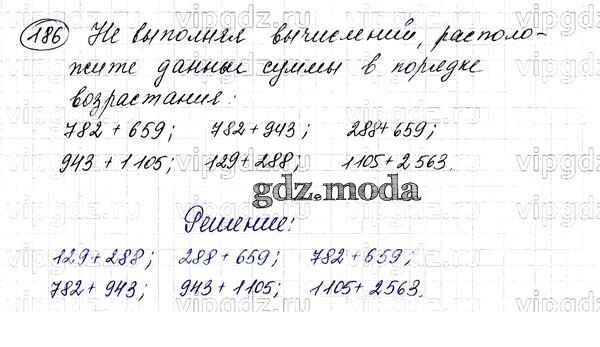 186 Не выполняя вычислений, располо-
жите данные суммы в порядке
возрастания:
782 + 659; 782 + 943; 288 + 659;
943 + 1105; 129 + 288; 1105 + 2563.
gdz.moda
Решение:
129 + 288; 288 + 659; 782 + 659;
782 + 943; 943 + 1105; 1105 + 2563.